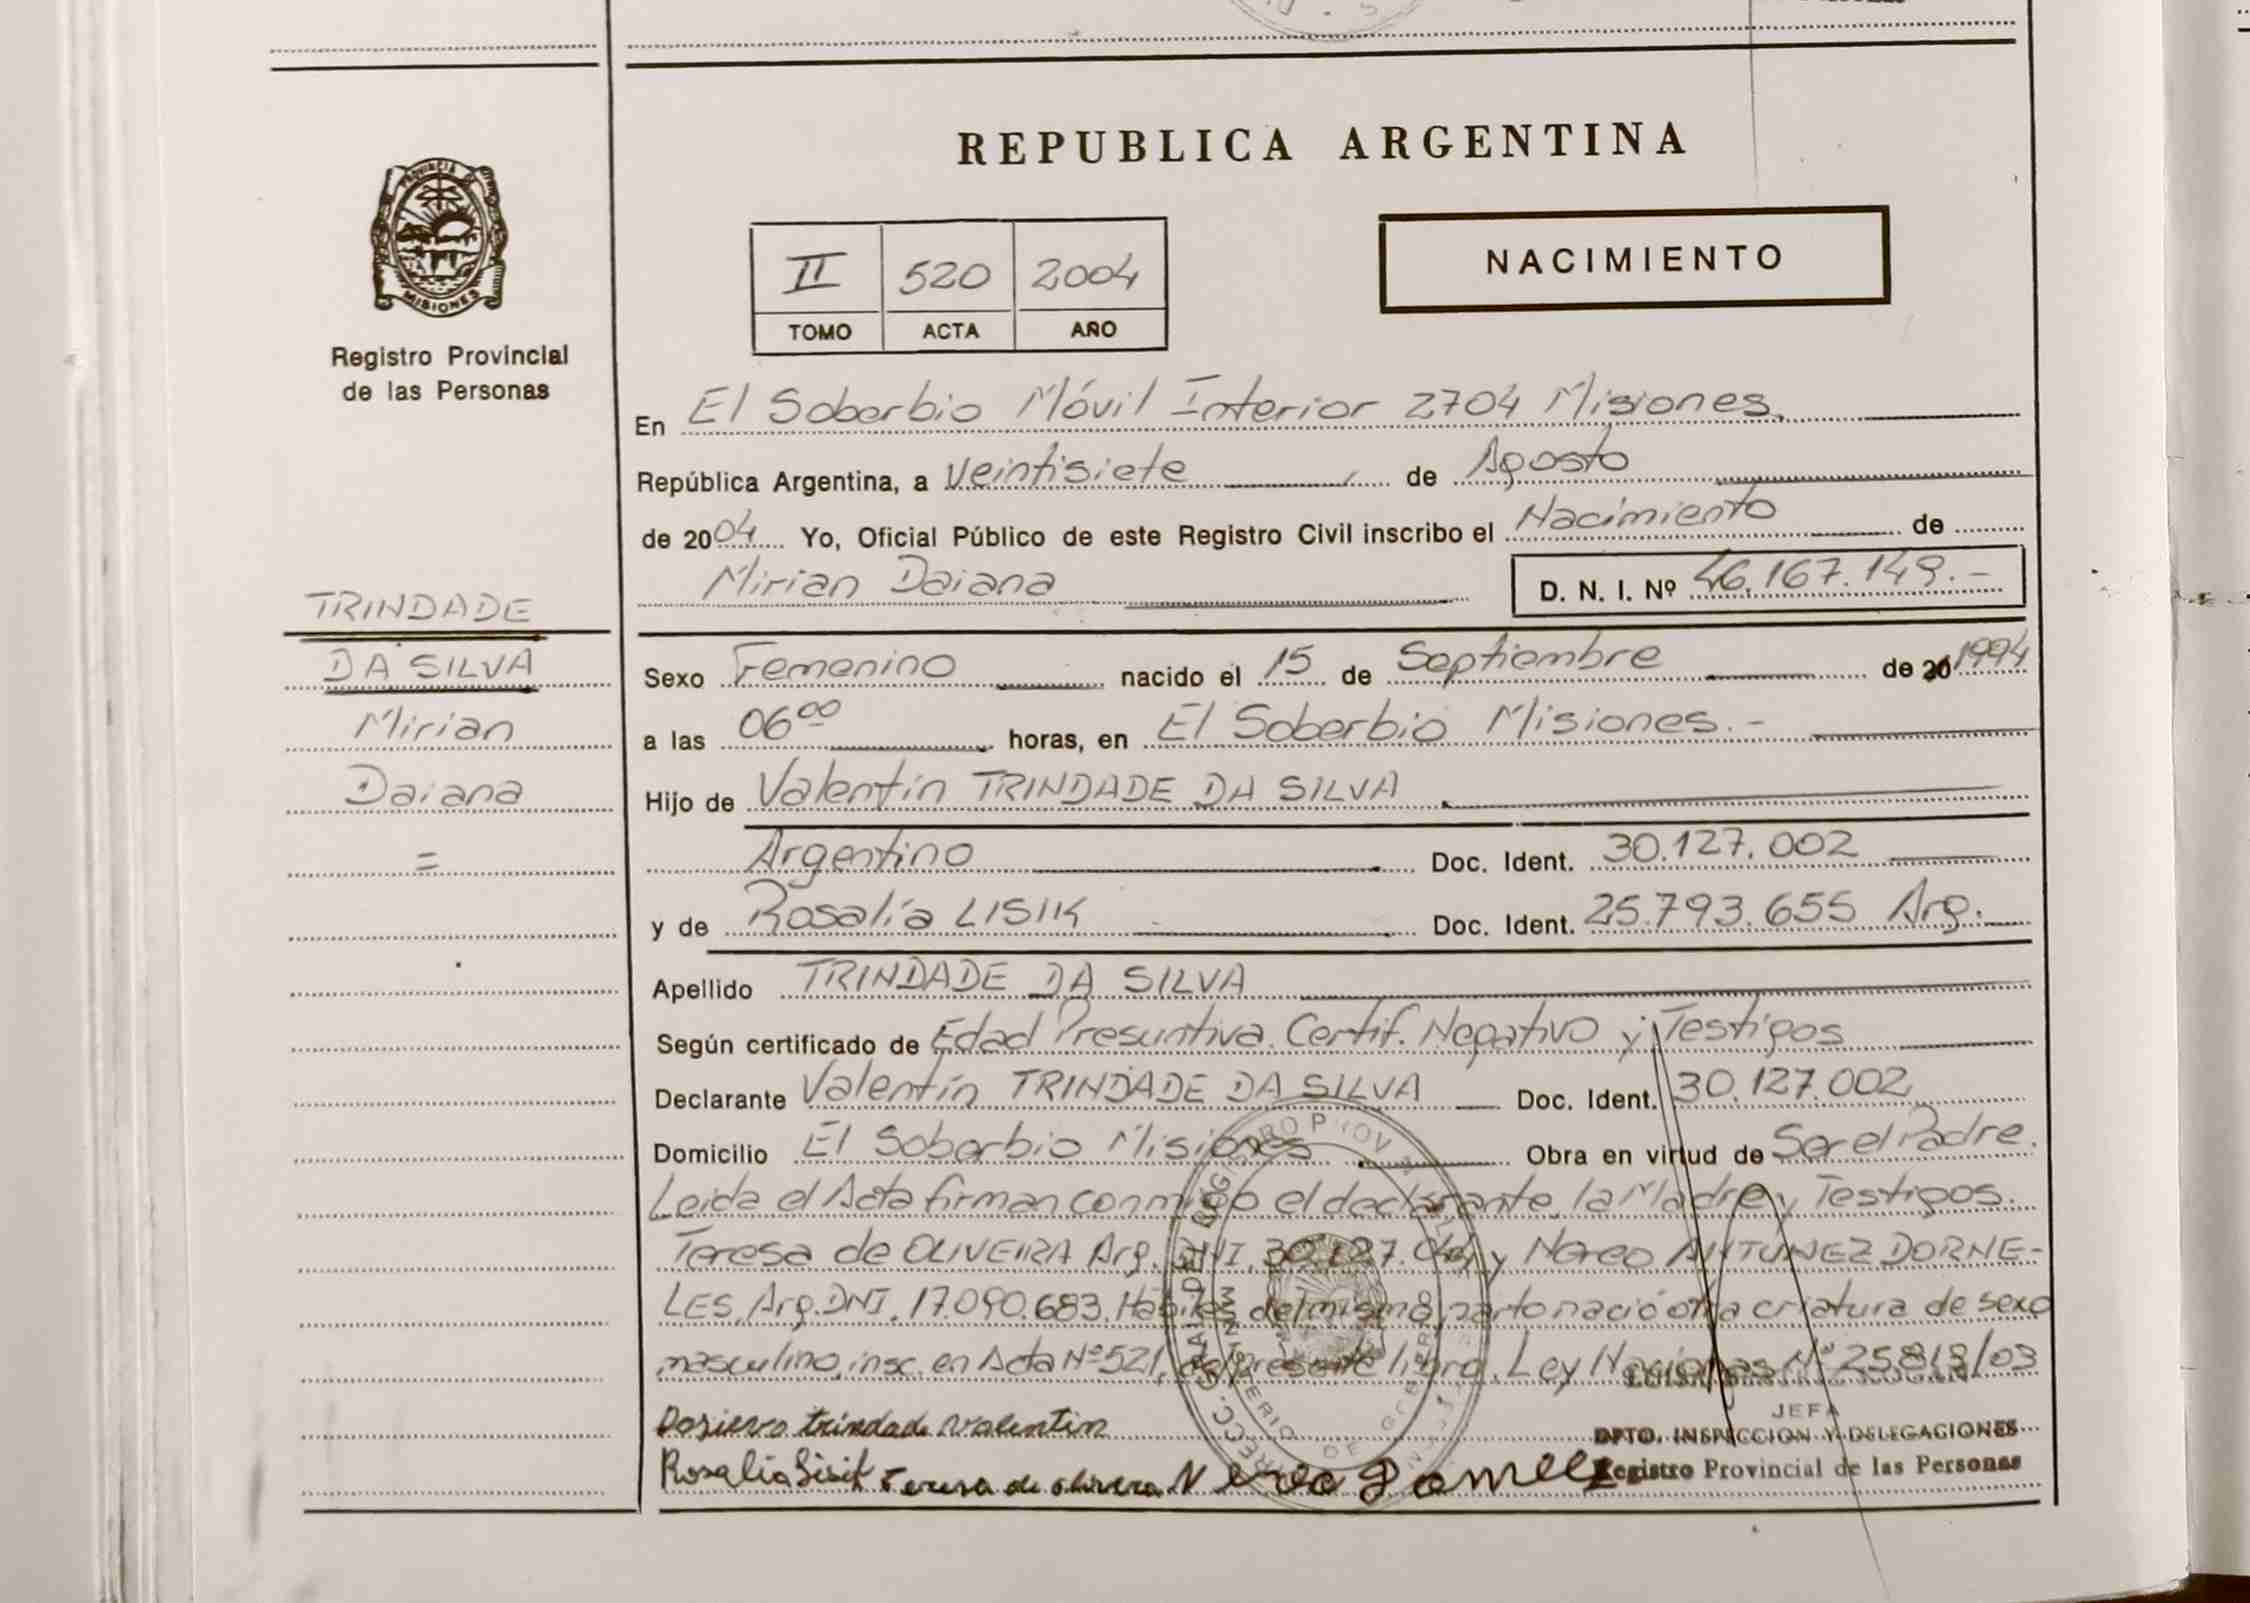 REPUBLICA ARGENTINA
PROVINCIA DE
MISIONES
Registro Provincial
de las Personas
II 520 2004
TOMO ACTA AÑO
NACIMIENTO
En El Soberbio Móvil Interior 2704 Misiones.
República Argentina, a veintisiete de Agosto
de 2004 Yo, Oficial Público de este Registro Civil inscribo el Nacimiento de
Mirian Daiana D. N. I. Nº 46.167.149.-
TRINDADE
DA SILVA
Mirian
Daiana
=
Sexo Femenino nacido el 15 de Septiembre de 20 1994
a las 06⁰⁰ horas, en El Soberbio Misiones.-
Hijo de Valentín TRINDADE DA SILVA
Argentino Doc. Ident. 30.127.002
y de Rosalía LISIK Doc. Ident. 25.793.655 Arg.
Apellido TRINDADE DA SILVA
Según certificado de Edad Presuntiva. Certif. Negativo y Testigos
Declarante Valentín TRINDADE DA SILVA Doc. Ident. 30.127.002
Domicilio El Soberbio Misiones Obra en virtud de Ser el Padre.
Leida el Acta firman conmigo el declarante, la Madre y Testigos.
Teresa de OLIVEIRA Arg. DNI. y Nereo ANTUNEZ DORNE-
LES, Arg. DNI. 17.090.683. Hábiles del mismo parto nació otra criatura de sexo
masculino, insc. en Acta Nº 521, del presente libro. Ley Nº 25819/03
trindade valentin
Rosalia Lisik Teresa de olivera
JEFA
DPTO. INSPECCION Y DELEGACIONES
Registro Provincial de las Personas